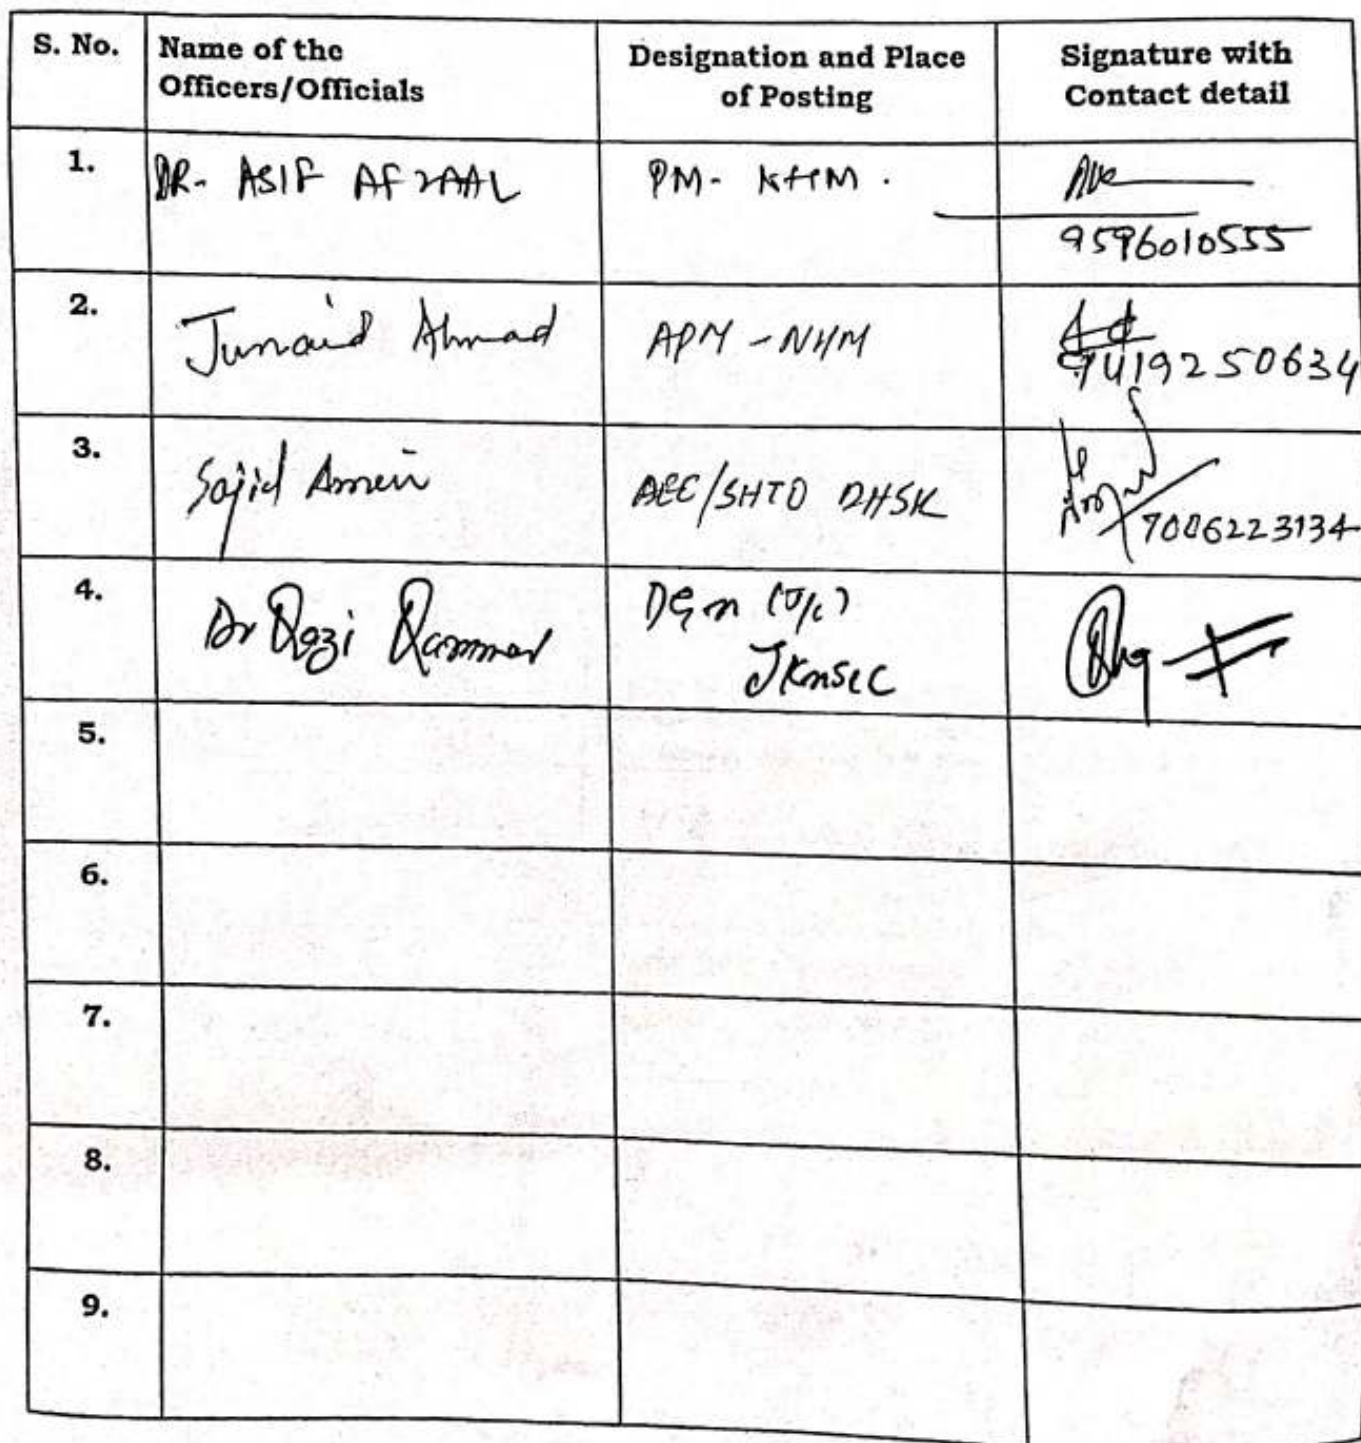 S. No.
Name of the
Officers/Officials
Designation and Place
of Posting
Signature with
Contact detail
1.
DR. ASIF AFZAAL
PM- NHM.
9596010555
2.
Junaid Ahmad
APM - NHM
9419250634
3.
Sajid Amein
AEC/SHTO DHSK
7006223134
4.
Dr Qazi Qammar
DGM (T/C)
JKMSCC
5.
6.
7.
8.
9.